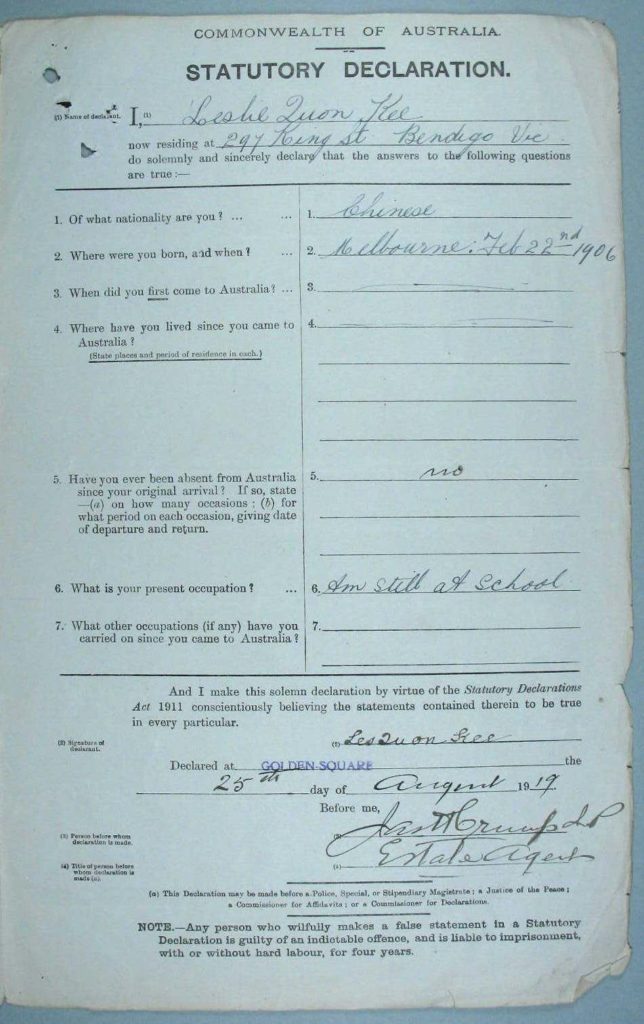 COMMONWEALTH OF AUSTRALIA.
STATUTORY DECLARATION.
(1) Name of declarant. I, (1) Leslie Quon Kee
now residing at 297 King St Bendigo Vic
do solemnly and sincerely declare that the answers to the following questions
are true:—
1. Of what nationality are you? ... ... 1. Chinese
2. Where were you born, and when? ... 2. Melbourne: Feb 22nd 1906
3. When did you first come to Australia? ... 3.
4. Where have you lived since you came to 4.
Australia?
(State places and period of residence in each.)
5. Have you ever been absent from Australia 5. no
since your original arrival? If so, state
—(a) on how many occasions; (b) for
what period on each occasion, giving date
of departure and return.
6. What is your present occupation? ... 6. Am still at School
7. What other occupations (if any) have you 7.
carried on since you came to Australia?
And I make this solemn declaration by virtue of the Statutory Declarations
Act 1911 conscientiously believing the statements contained therein to be true
in every particular.
(2) Signature of
declarant.
(2) Les Quon Kee
Declared at GOLDEN-SQUARE the
25th day of August 1919
Before me,
(3) Person before whom
declaration is made.
(3) Crump J.P
(4) Title of person before
whom declaration is
made (a).
(4) Estate Agent
(a) This Declaration may be made before a Police, Special, or Stipendiary Magistrate; a Justice of the Peace;
a Commissioner for Affidavits; or a Commissioner for Declarations.
NOTE.—Any person who wilfully makes a false statement in a Statutory
Declaration is guilty of an indictable offence, and is liable to imprisonment,
with or without hard labour, for four years.